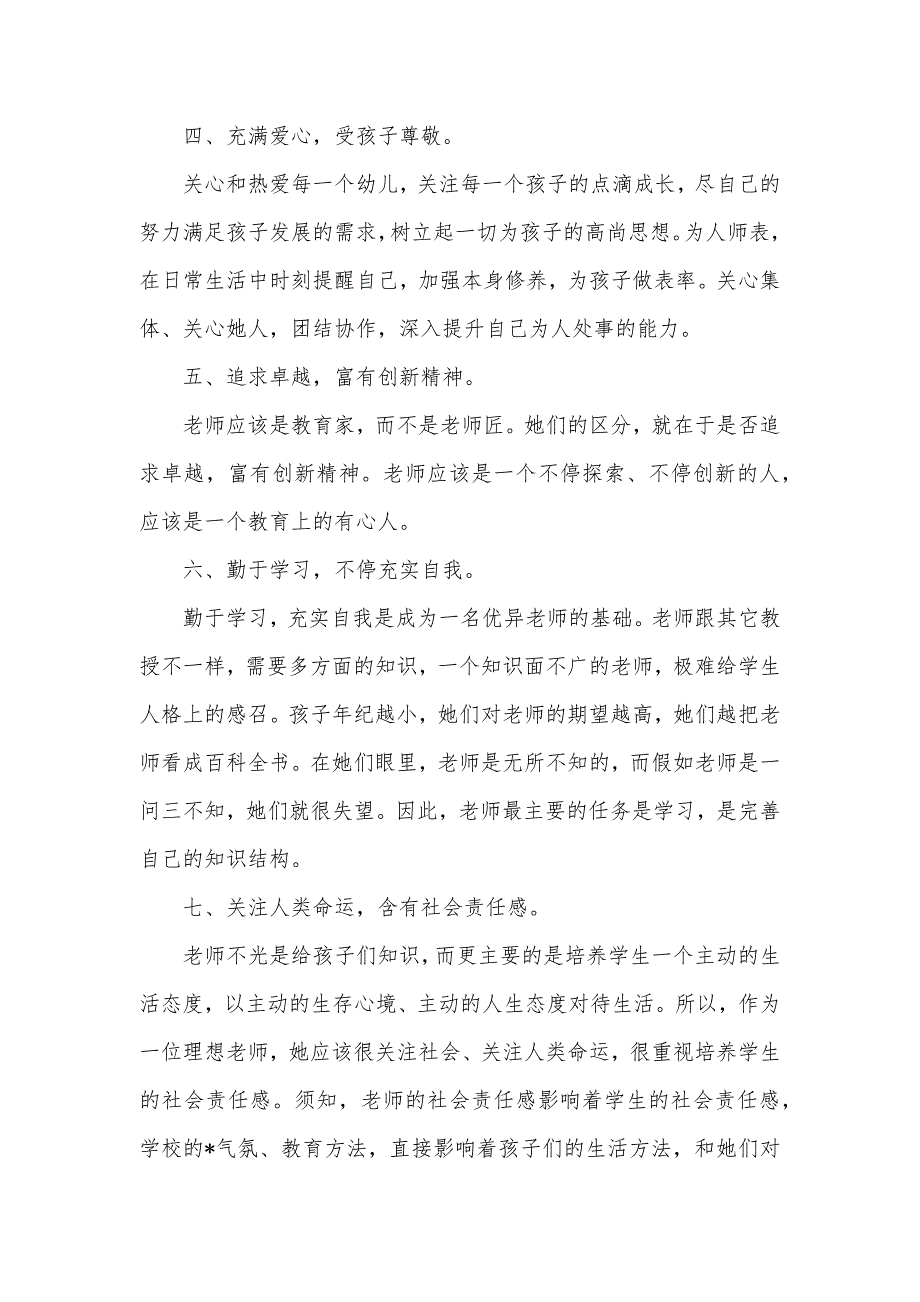 四、充满爱心，受孩子尊敬。
关心和热爱每一个幼儿，关注每一个孩子的点滴成长，尽自己的
努力满足孩子发展的需求，树立起一切为孩子的高尚思想。为人师表，
在日常生活中时刻提醒自己，加强本身修养，为孩子做表率。关心集
体、关心她人，团结协作，深入提升自己为人处事的能力。
五、追求卓越，富有创新精神。
老师应该是教育家，而不是老师匠。她们的区分，就在于是否追
求卓越，富有创新精神。老师应该是一个不停探索、不停创新的人，
应该是一个教育上的有心人。
六、勤于学习，不停充实自我。
勤于学习，充实自我是成为一名优异老师的基础。老师跟其它教
授不一样，需要多方面的知识，一个知识面不广的老师，极难给学生
人格上的感召。孩子年纪越小，她们对老师的期望越高，她们越把老
师看成百科全书。在她们眼里，老师是无所不知的，而假如老师是一
问三不知，她们就很失望。因此，老师最主要的任务是学习，是完善
自己的知识结构。
七、关注人类命运，含有社会责任感。
老师不光是给孩子们知识，而更主要的是培养学生一个主动的生
活态度，以主动的生存心境、主动的人生态度对待生活。所以，作为
一位理想老师，她应该很关注社会、关注人类命运，很重视培养学生
的社会责任感。须知，老师的社会责任感影响着学生的社会责任感，
学校的*气氛、教育方法，直接影响着孩子们的生活方法，和她们对